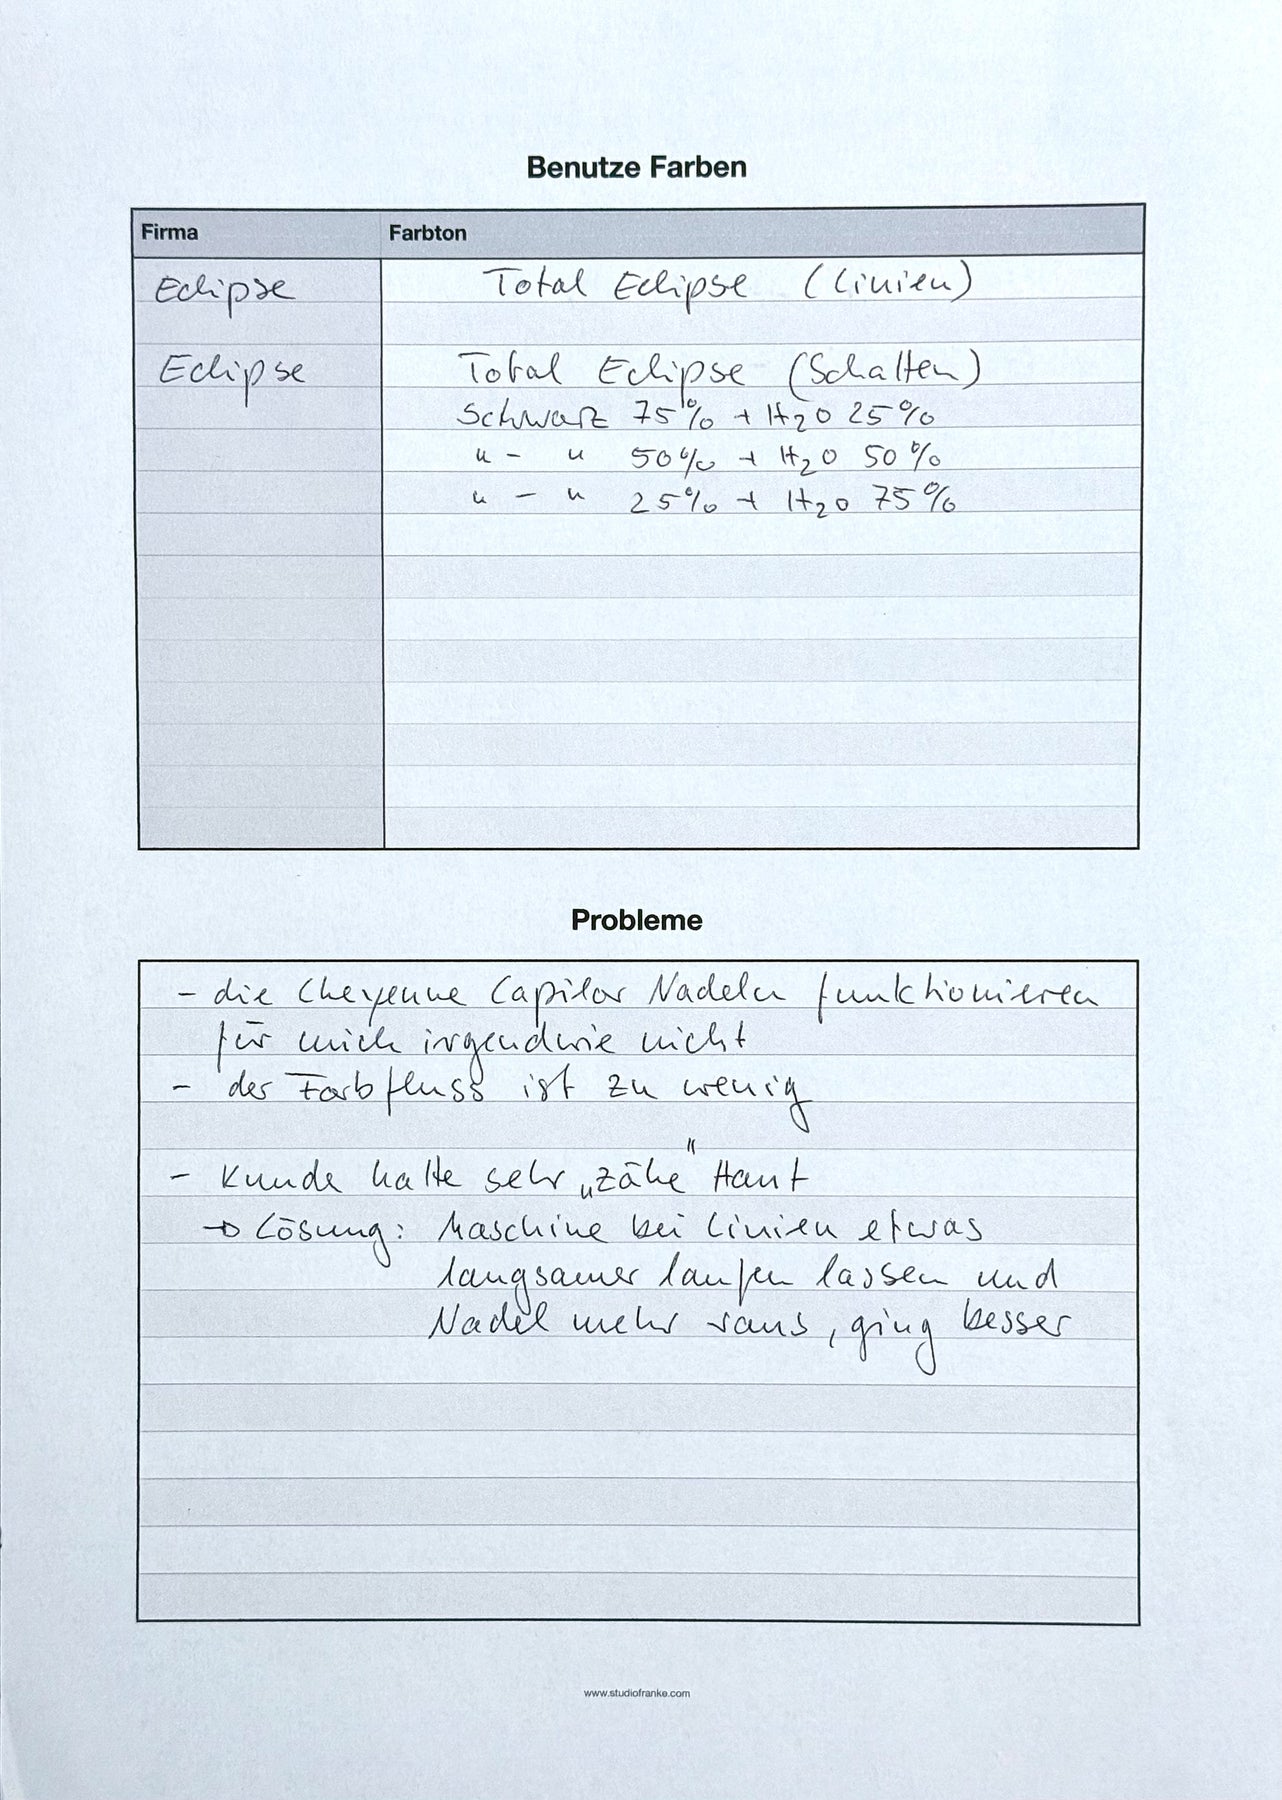 Benutze Farben
Firma Farbton
Eclipse Total Eclipse (Linien)
Eclipse Total Eclipse (Schatten)
Schwarz 75% + H₂O 25%
" - " 50% + H₂O 50%
" - " 25% + H₂O 75%
Probleme
- die Cheyenne Capilar Nadeln funktionieren
für mich irgendwie nicht
- der Farbfluss ist zu wenig
- Kunde hatte sehr „zähe" Haut
→ Lösung: Maschine bei Linien etwas
langsamer laufen lassen und
Nadel mehr raus, ging besser
www.studiofranke.com